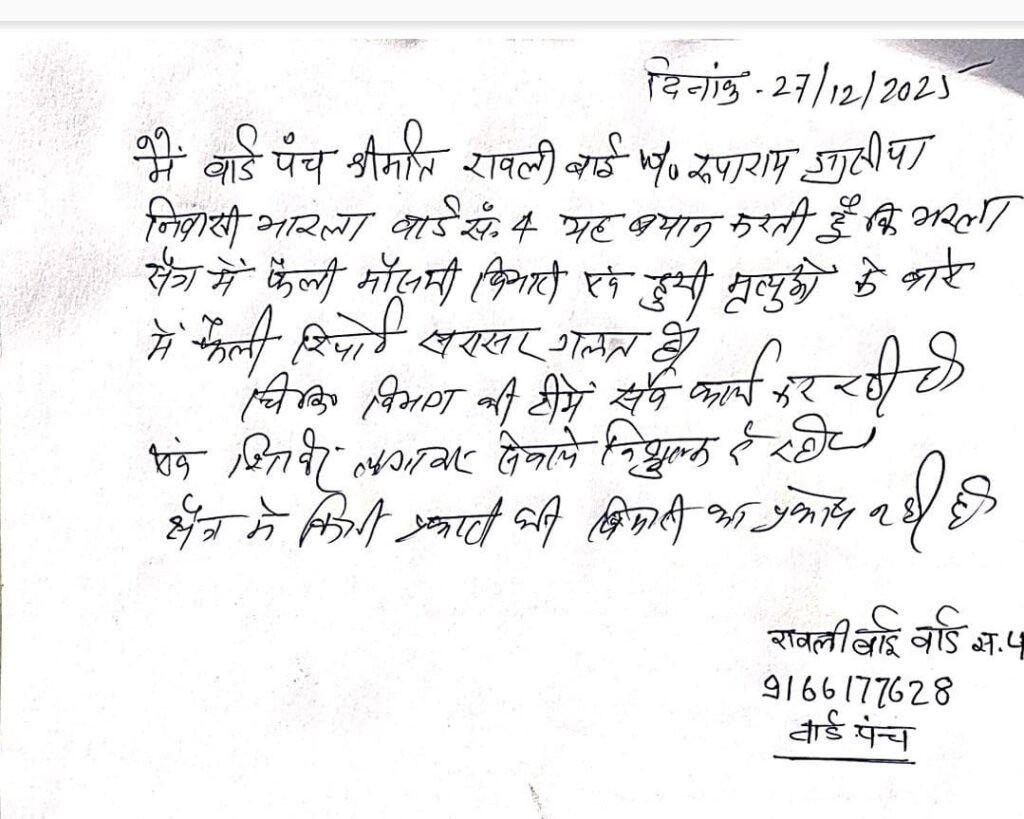 दिनांक - 27/12/2025
मैं वार्ड पंच श्रीमति रावली बाई w/o रूपाराम
निवासी भारला वार्ड सं. 4 यह बयान करती हूँ कि भारला
क्षैत्र में फैली मौसमी बिमारी एवं हुयी मृत्युओ के बारे
में फैली रिपोर्ट सरासर गलत है।
विभाग की टीमें सर्वे कार्य कर रही है
एवं लगाकर सेवाये निशुल्क दे रही है
क्षैत्र मे किसी प्रकार की बिमारी का प्रकोप नही है
रावली बाई वार्ड स. 4
9166177628
वार्ड पंच